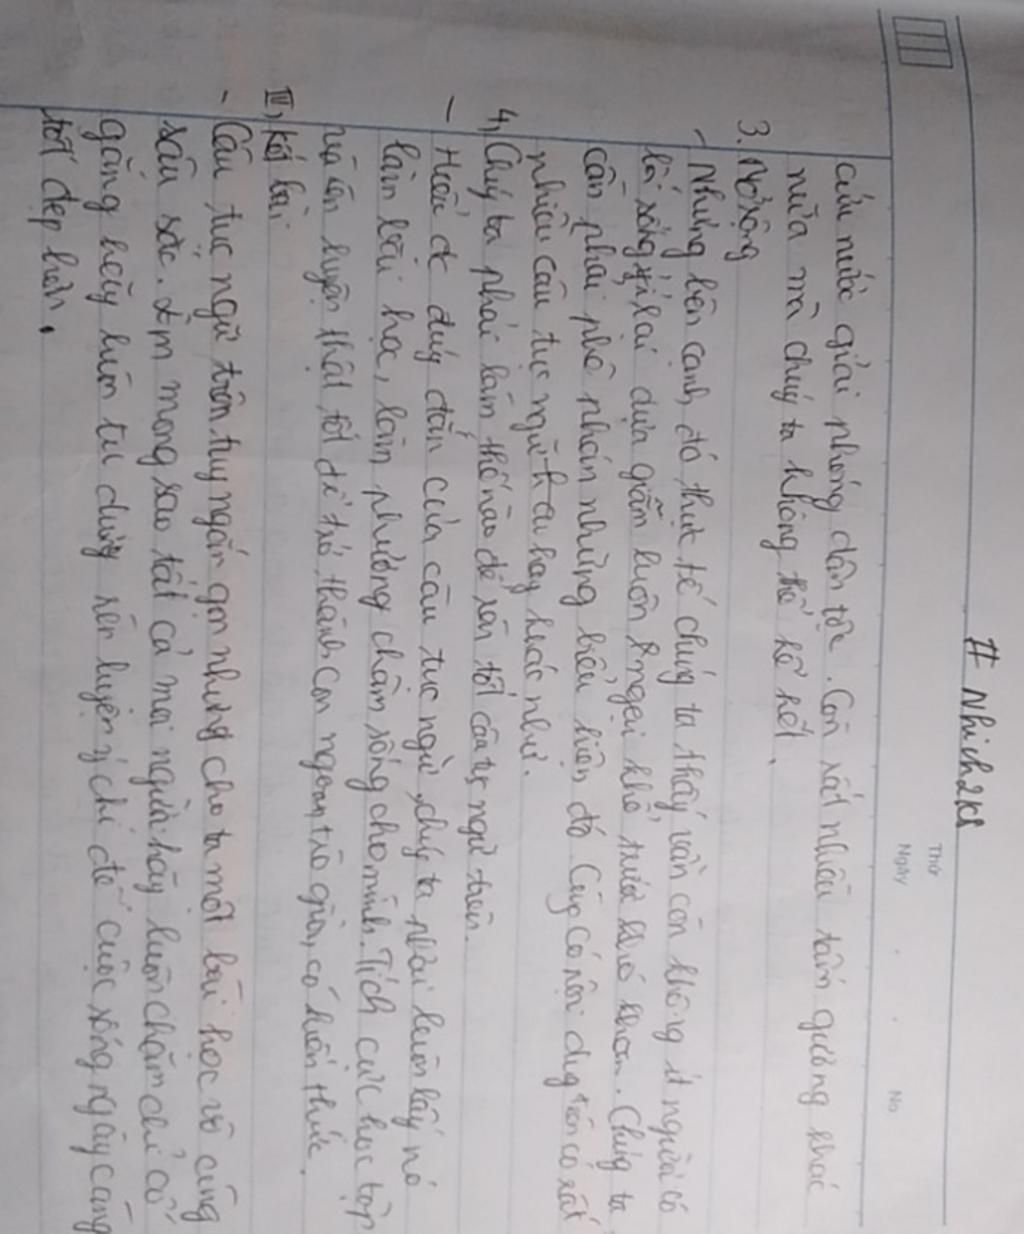 # Nhinh2k8
Thứ
Ngày . . No
cứu nước giải phóng dân tộc. Còn rất nhiều tấm gương khác
nữa mà chúg ta không thể kể hết.
3. Mở rộng
- Nhưng bên cạnh đó, thực tế chúng ta thấy vẫn còn không ít người có
lối sống ỷ lại dựa giẫm luôn ngại khổ trước khó khăn. Chúng ta
cần phải phê phán những biểu hiện đó. Cũng có nội dug trên có rất
nhiều câu tục ngữ hay khác như.
4, Chúg ta phải làm thế nào để làm tốt câu tục ngữ trên.
- Hiểu đc đúg đắn của câu tục ngữ, chúg ta phải luôn lấy nó
làm bài học, làm phương châm sống cho mình. Tích cực học tập
và rèn luyện thật tốt để trở thành con ngoan, trò giỏi, có kiến thức.
III, Kết bài
- Câu tục ngữ trên tuy ngắn gọn nhưng cho ta một bài học vô cùng
sâu sắc. Em mong sao tất cả mọi người hãy luôn chăm chỉ cố
gắng hãy luôn tu dưỡng rèn luyện ý chí để cuộc sống ngày càng
tốt đẹp hơn.